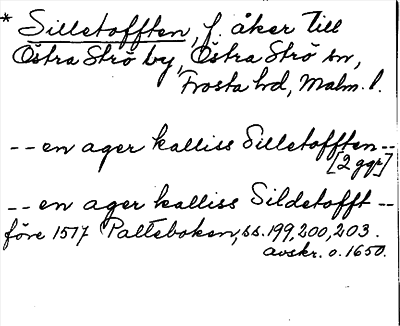 * Silletofften, f. åker till
Östra Strö by, Östra Strö sn,
Frosta hd, Malm. l.
-- en ager kalliss Silletofften --
[2 ggr]
-- en ager kalliss Sildetofft --
före 1517 Palteboken, ss. 199, 200, 203.
avskr. o. 1650.